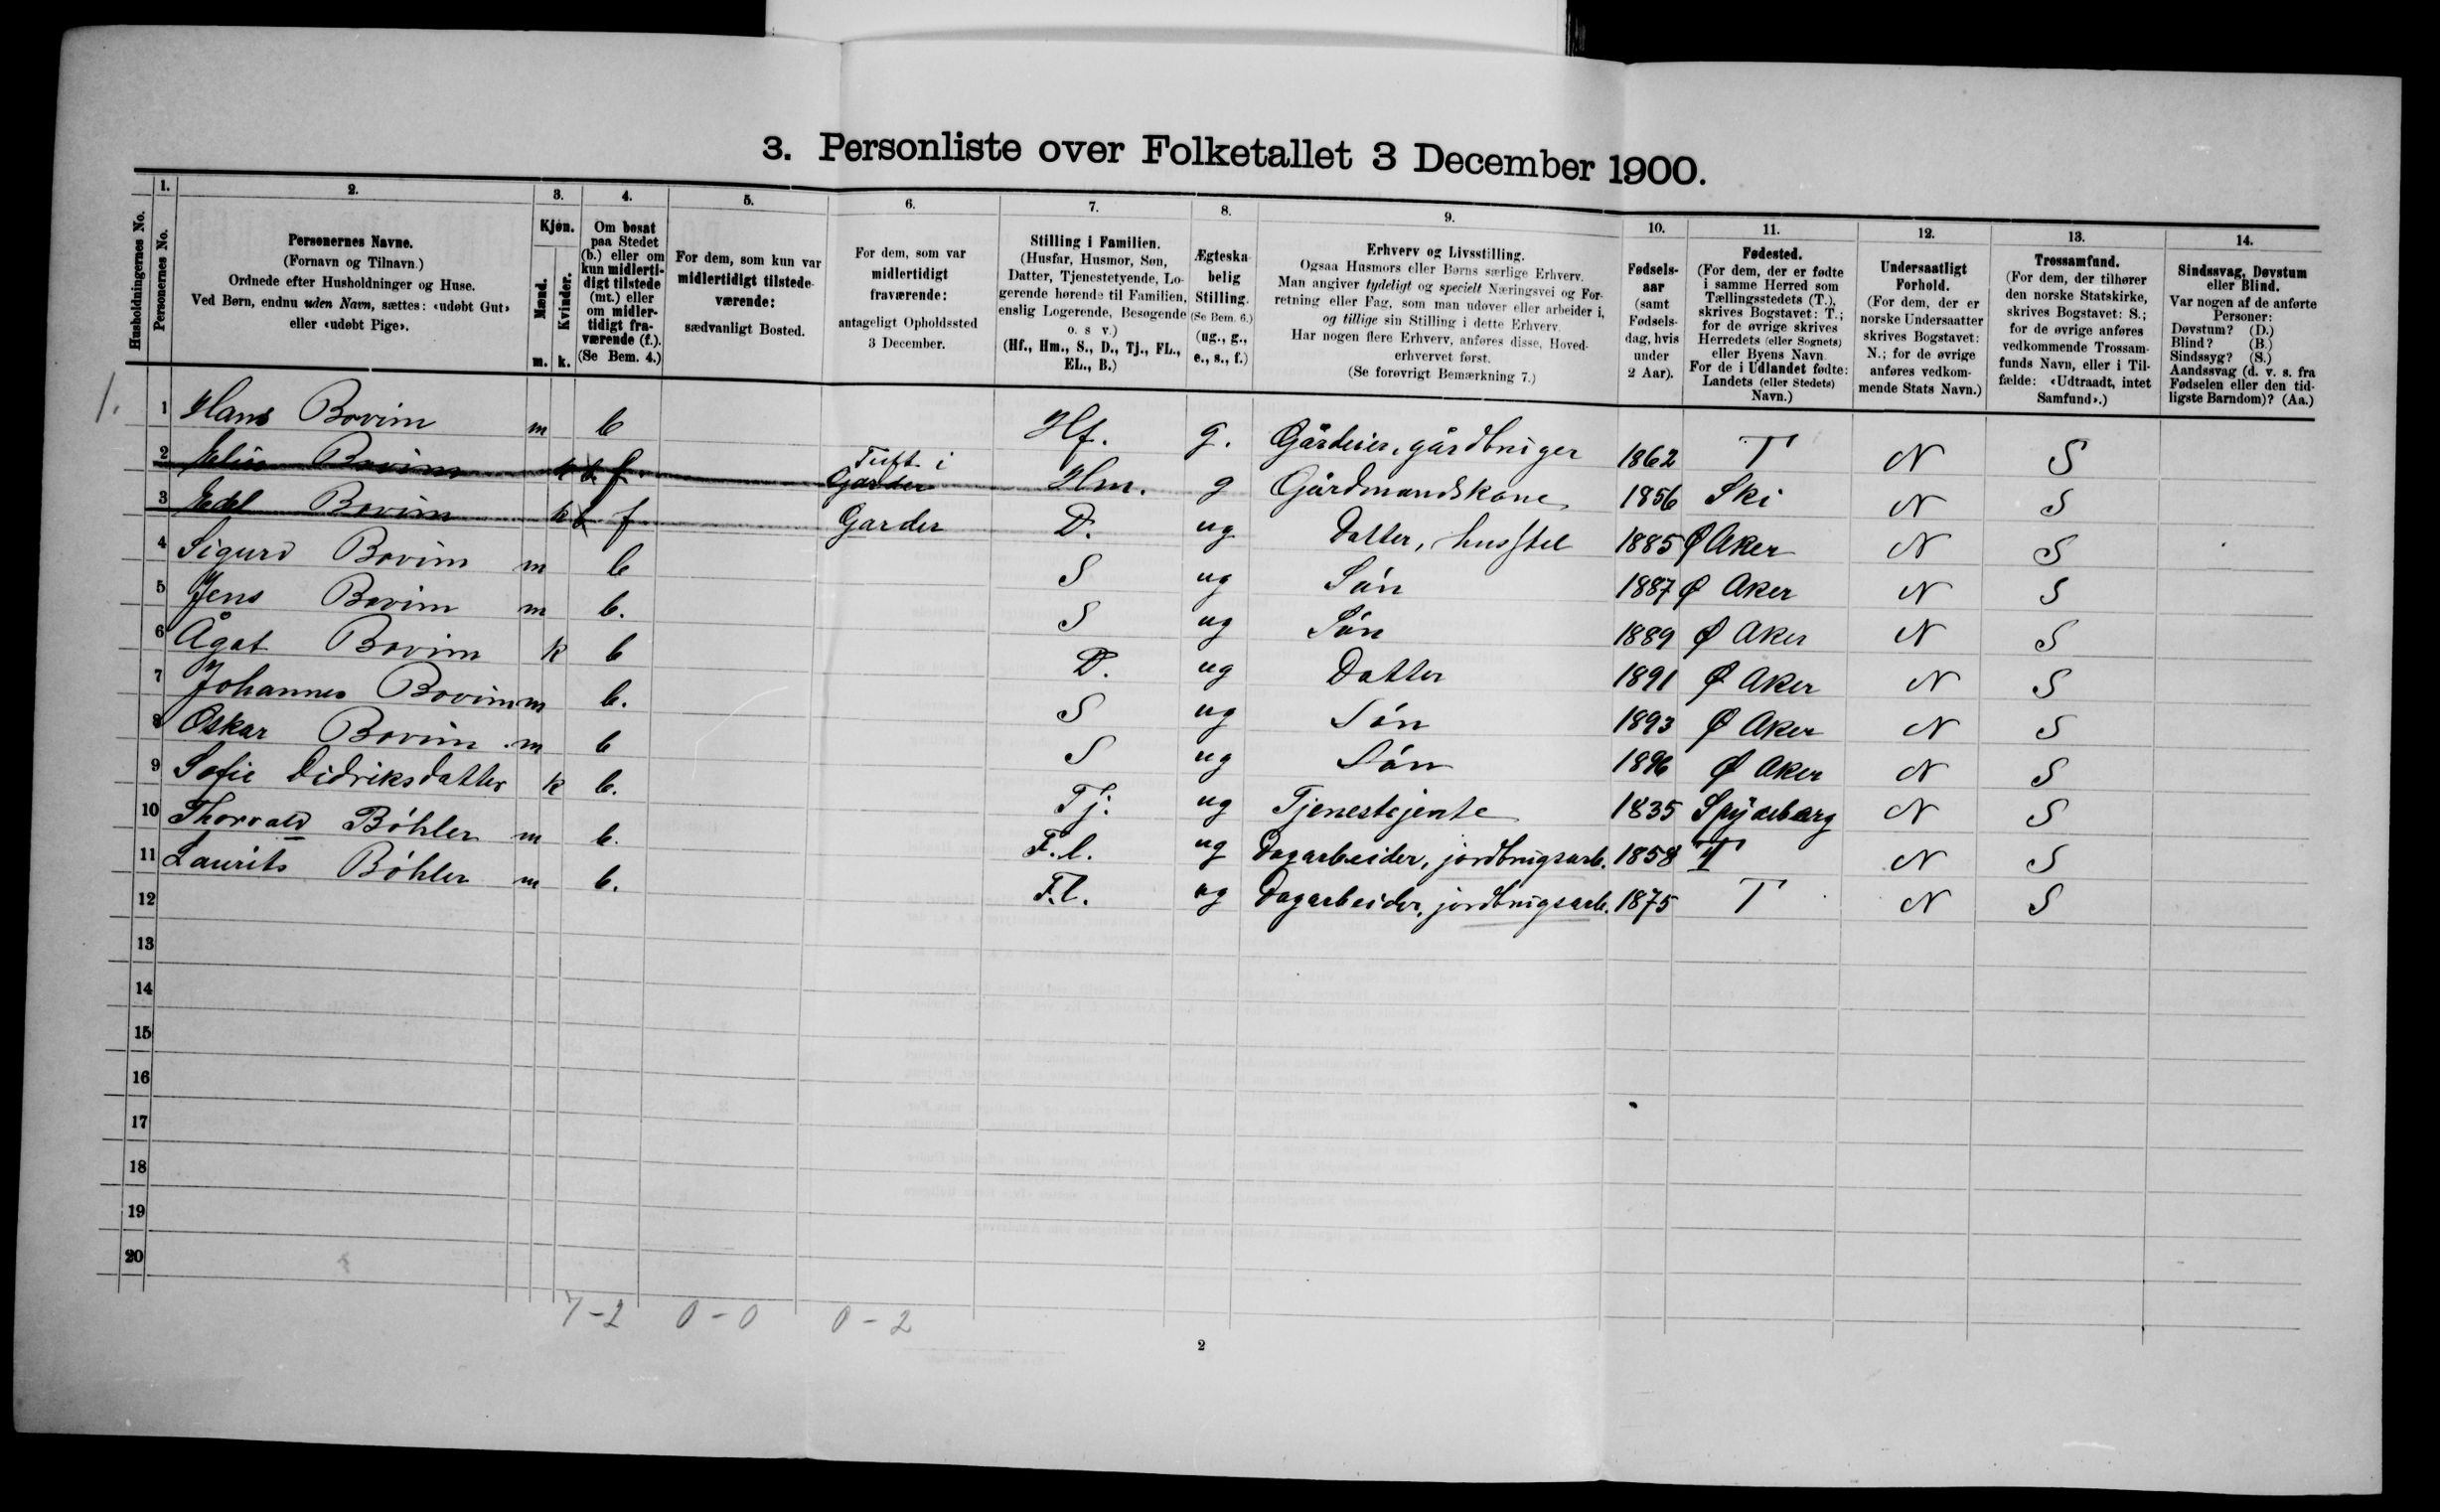 3. Personliste over Folketallet 3 December 1900.
Husholdningernes No.
1. Personernes No.
2. Personernes Navne.
(Fornavn og Tilnavn.)
Ordnede efter Husholdninger og Huse.
Ved Børn, endnu uden Navn, sættes: «udøbt Gut»
eller «udøbt Pige».
3. Kjøn.
Mænd. m.
Kvinder. k.
4. Om bosat
paa Stedet
(b.) eller om
kun midlerti-
digt tilstede
(mt.) eller
om midler-
tidigt fra-
værende (f.).
(Se Bem. 4.)
5. For dem, som kun var
midlertidigt tilstede-
værende:
sædvanligt Bosted.
6. For dem, som var
midlertidigt
fraværende:
antageligt Opholdssted
3 December.
7. Stilling i Familien.
(Husfar, Husmor, Søn,
Datter, Tjenestetyende, Lo-
gerende hørende til Familien,
enslig Logerende, Besøgende
o. s v.)
(Hf., Hm., S., D., Tj., FL.,
EL., B.)
8. Ægteska-
belig
Stilling.
(Se Bem. 6.)
(ug., g.,
e., s., f.)
9. Erhverv og Livsstilling.
Ogsaa Husmors eller Børns særlige Erhverv.
Man angiver tydeligt og specielt Næringsvei og For-
retning eller Fag, som man udøver eller arbeider i,
og tillige sin Stilling i dette Erhverv.
Har nogen flere Erhverv, anføres disse, Hoved-
erhvervet først.
(Se forøvrigt Bemærkning 7.)
10. Fødsels-
aar
(samt
Fødsels-
dag, hvis
under
2 Aar).
11. Fødested.
(For dem, der er fødte
i samme Herred som
Tællingsstedets (T.),
skrives Bogstavet: T.;
for de øvrige skrives
Herredets (eller Sognets)
eller Byens Navn.
For de i Udlandet fødte:
Landets (eller Stedets)
Navn.)
12. Undersaatligt
Forhold.
(For dem, der er
norske Undersaatter
skrives Bogstavet:
N.; for de øvrige
anføres vedkom-
mende Stats Navn.)
13. Trossamfund.
(For dem, der tilhører
den norske Statskirke,
skrives Bogstavet: S.;
for de øvrige anføres
vedkommende Trossam-
funds Navn, eller i Til-
fælde: «Udtraadt, intet
Samfund».)
14. Sindssvag, Døvstum
eller Blind.
Var nogen af de anførte
Personer:
Døvstum? (D.)
Blind? (B.)
Sindssyg? (S.)
Aandssvag (d. v. s. fra
Fødselen eller den tid-
ligste Barndom)? (Aa.)
1. 1 Hans Bovim m b Hf. g. Gårdeier, gårdbruger 1862 T N S
2 Bovim k b f Tuft i Garder Hm. g Gårdmandskone 1856 Ski N S
3 Edel Bovim k b f Garder D. ug Datter, husstel 1885 Ø Aker N S
4 Sigurd Bovim m b S ug Søn 1887 Ø Aker N S
5 Jens Bovim m b. S ug Søn 1889 Ø Aker N S
6 Ågot Bovim k b D. ug Datter 1891 Ø Aker N S
7 Johannes Bovim m b. S ug Søn 1893 Ø Aker N S
8 Oskar Bovim m b S ug Søn 1896 Ø Aker N S
9 Sofie Didriksdatter k b. Tj. ug Tjenestejente 1835 Spydeberg N S
10 Thorvald Bøhler m b. F.l. ug Dagarbeider, jordbrugsarb. 1858 T N S
11 Laurits Bøhler m b. F.l. ug Dagarbeider, jordbrugsarb. 1875 T N S
12
13
14
15
16
17
18
19
20
7-2 0-0 0-2
2